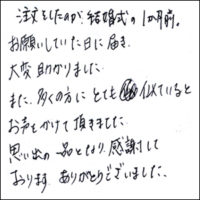 注文をしたのが、結婚式の1か月前。
お願いしていた日に届き、
大変助かりました。
また、多くの方に とても 似ていると
お声をかけて頂きました。
思い出の一品となり、感謝して
おります。ありがとうございました。